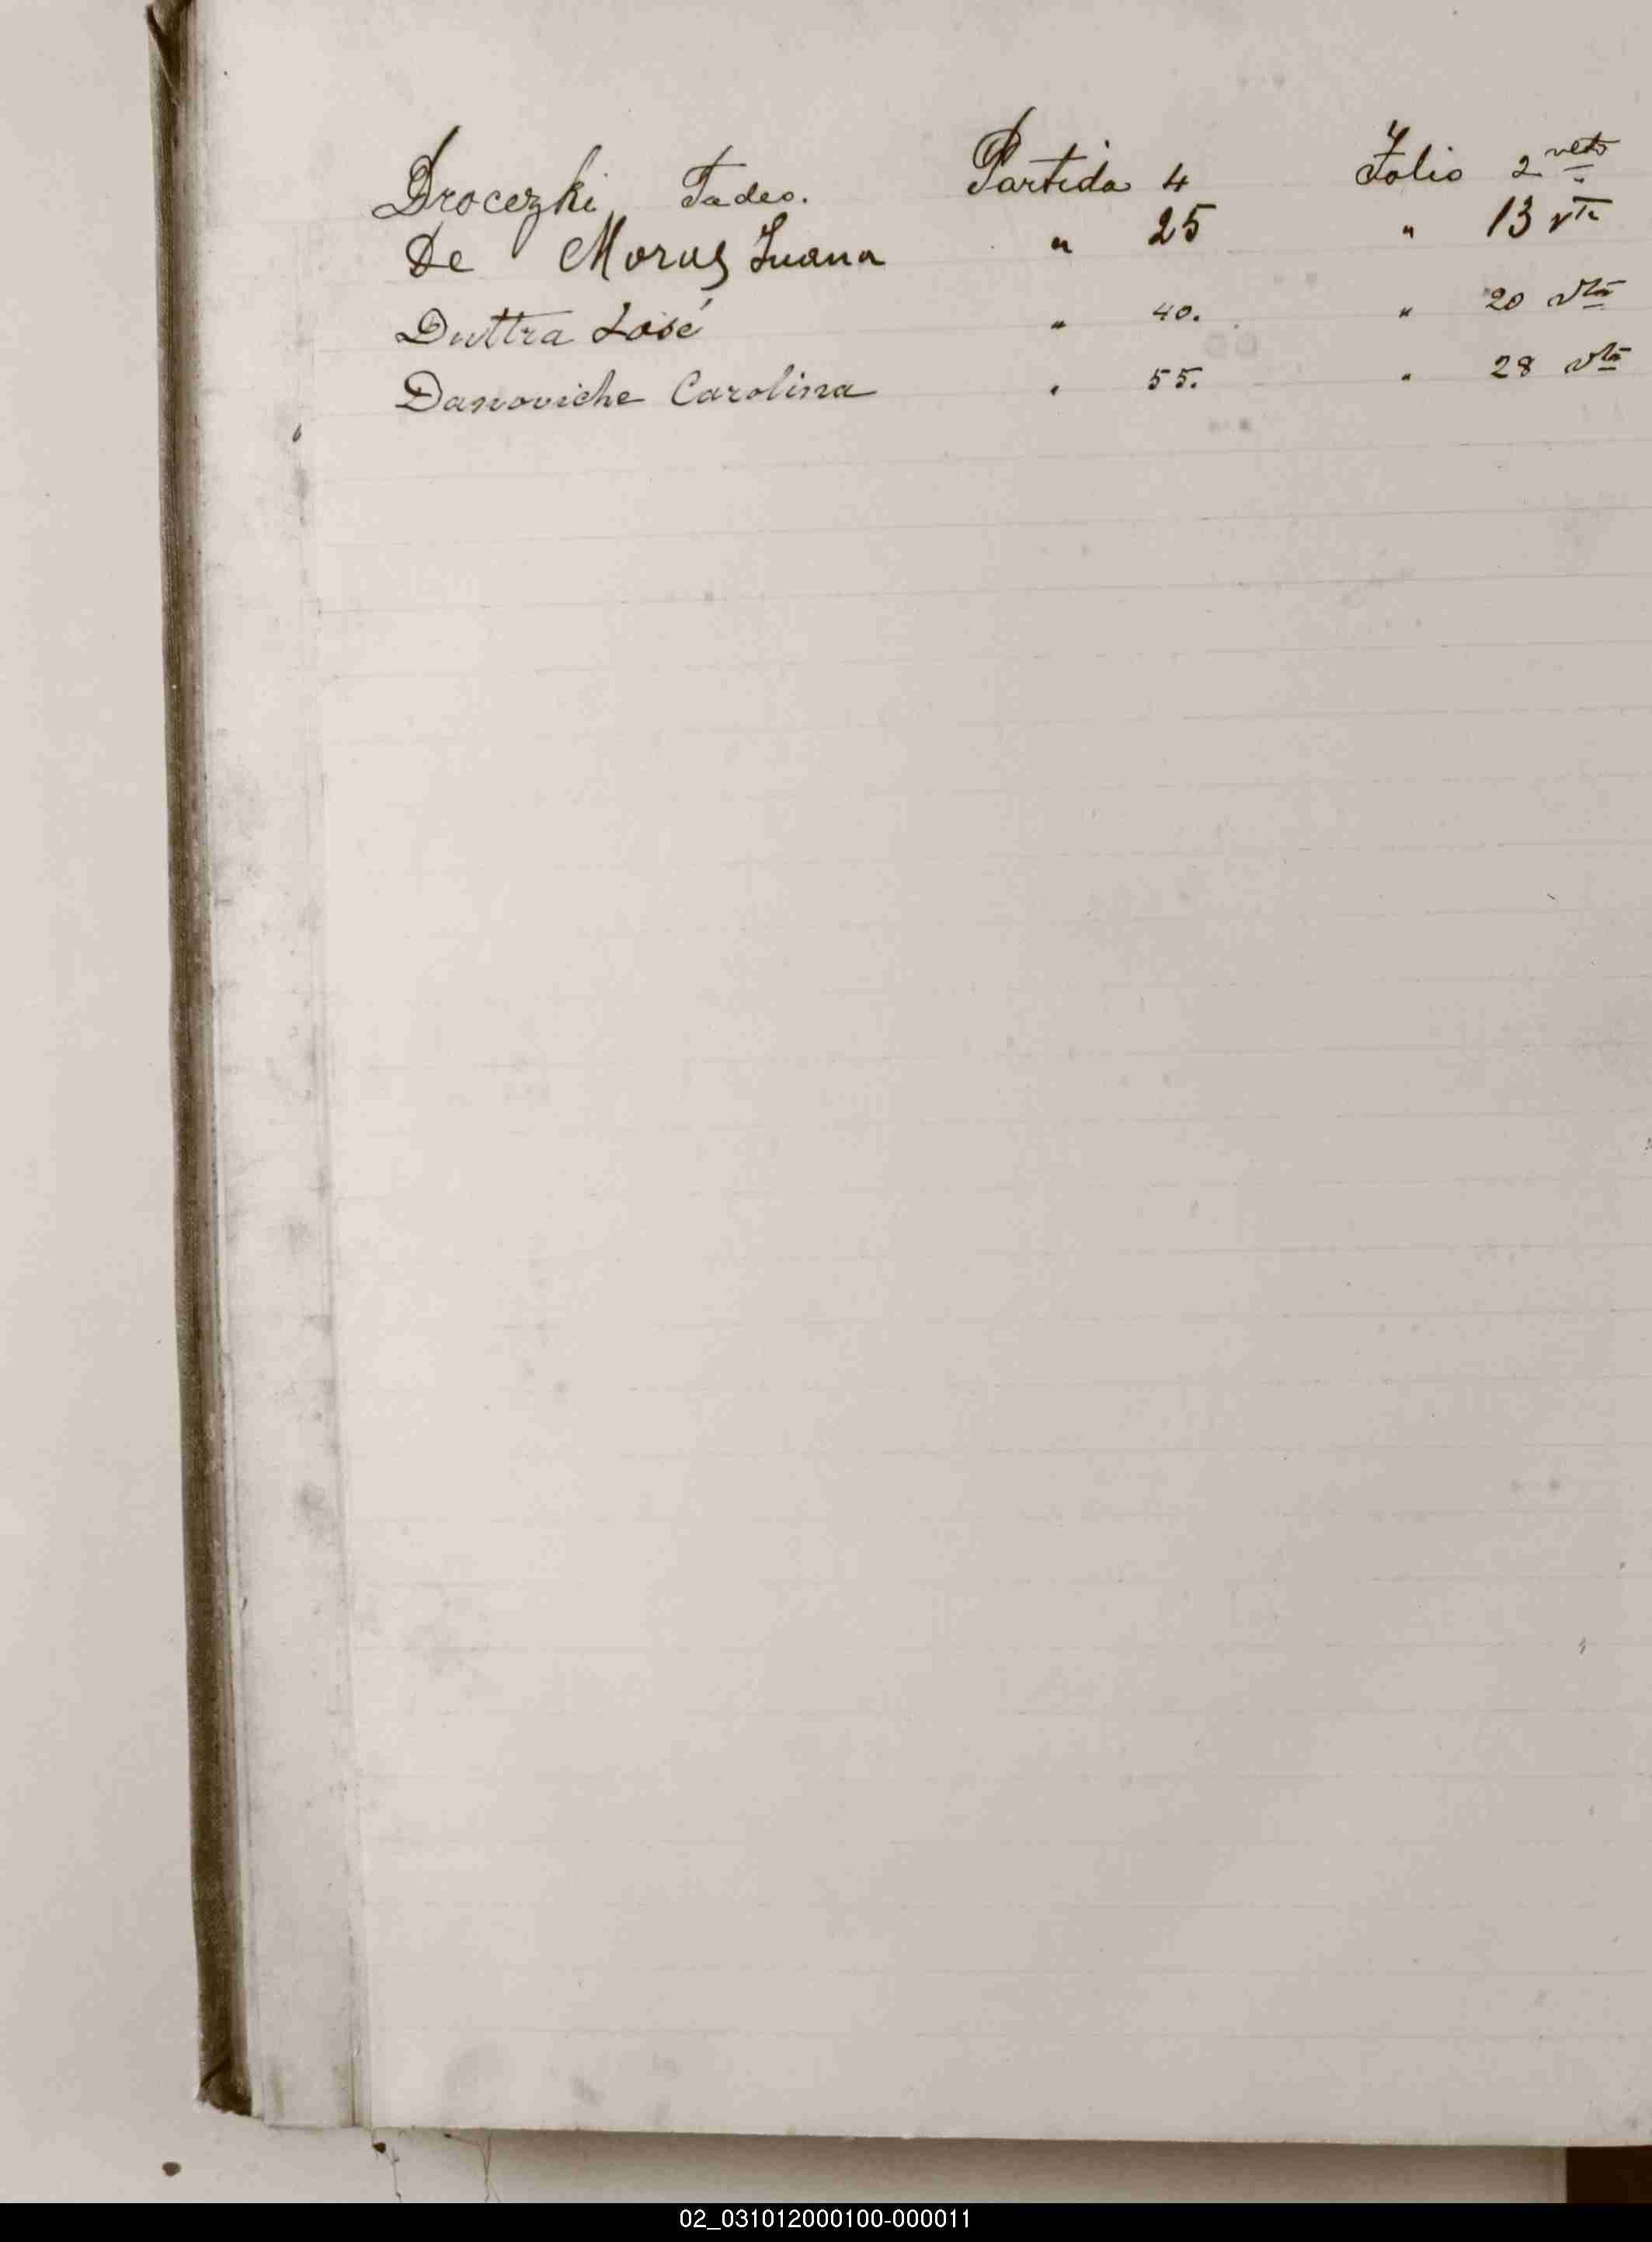 Drocezki Tadeo. Partida 4 Folio 2 vlto
De Moraes Juana " 25 " 13 vta
Duttra José " 40. " 20 vta
Danoviche Carolina " 55. " 28 vta
02_031012000100-000011